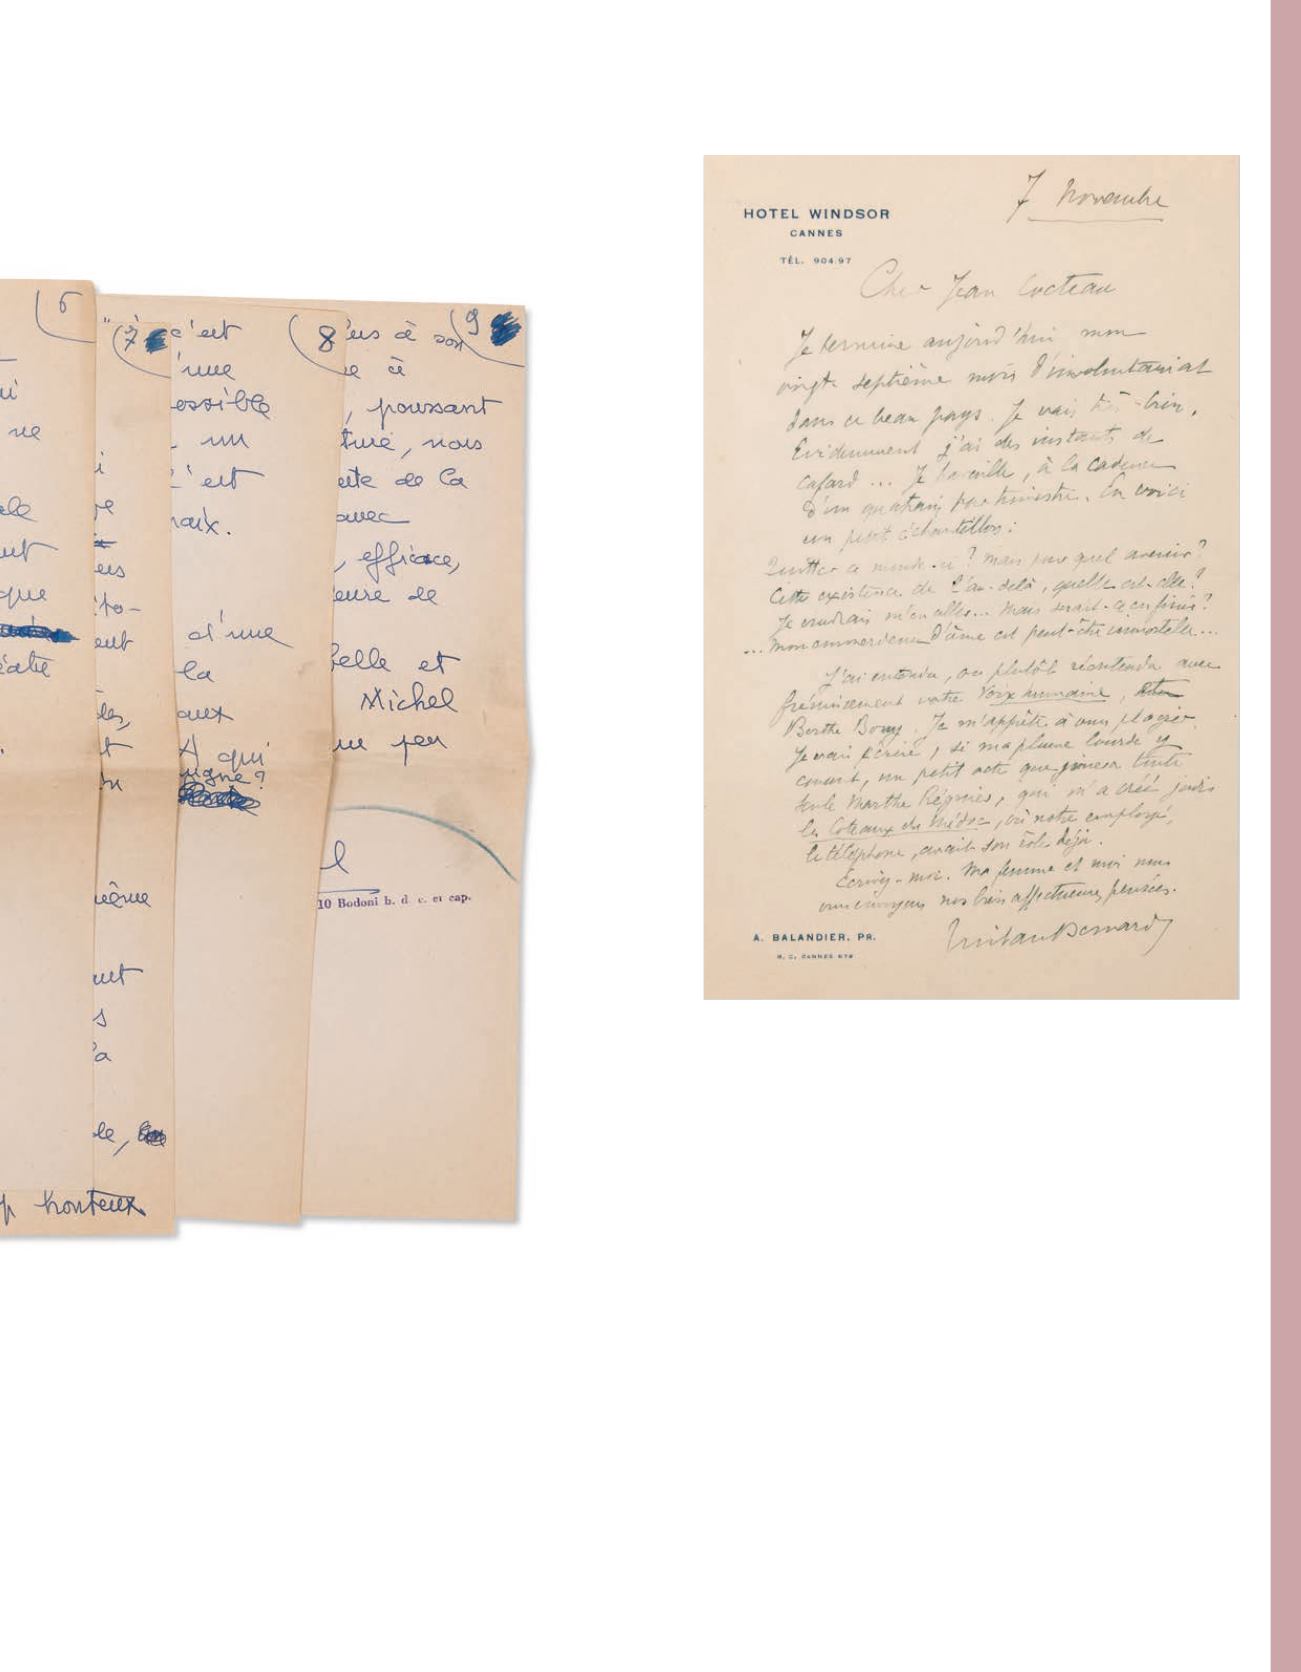 6
ui
ne
ale
que
p honteux
"7
i
ens
to-
ent
des,
t
même
s
la
le,
8
c'est
'une
possible
un
c'est
paix.
d'une
la
aux
A qui
9
à son
e à
, poussant
, nous
de la
avec
, efficace,
heure de
belle et
Michel
un peu
10 Bodoni b. d. c. et cap.
7 Novembre
HOTEL WINDSOR
CANNES
TÉL. 904.97
Cher Jean Cocteau
Je termine aujourd'hui mon
vingt septième mois d'involontariat
dans ce beau pays. Je vais très bien.
Evidemment j'ai des instants de
cafard ... Je travaille, à la cadence
d'un quatrain par trimestre. En voici
un petit échantillon :
Quitter ce monde-ci ? mais pour quel avenir ?
Cette existence de l'au-delà, quelle est-elle ?
Je voudrais m'en aller... Mais serait-ce en finir ?
... mon emmerdeuse d'âme est peut-être immortelle ...
J'ai entendu, ou plutôt réentendu avec
frémissement votre Voix humaine,
Berthe Bovy. Je m'apprête à vous plagier.
Je vais écrire, si ma plume lourde y
consent, un petit acte que jouera toute
seule Marthe Régnier, qui m'a créé jadis
les Coteaux du Médoc, où notre employé,
le téléphone, avait son rôle déjà.
Ecrivez-moi. Ma femme et moi nous
vous envoyons nos bien affectueuses pensées.
Tristan Bernard
A. BALANDIER, PR.
R. C. CANNES 679